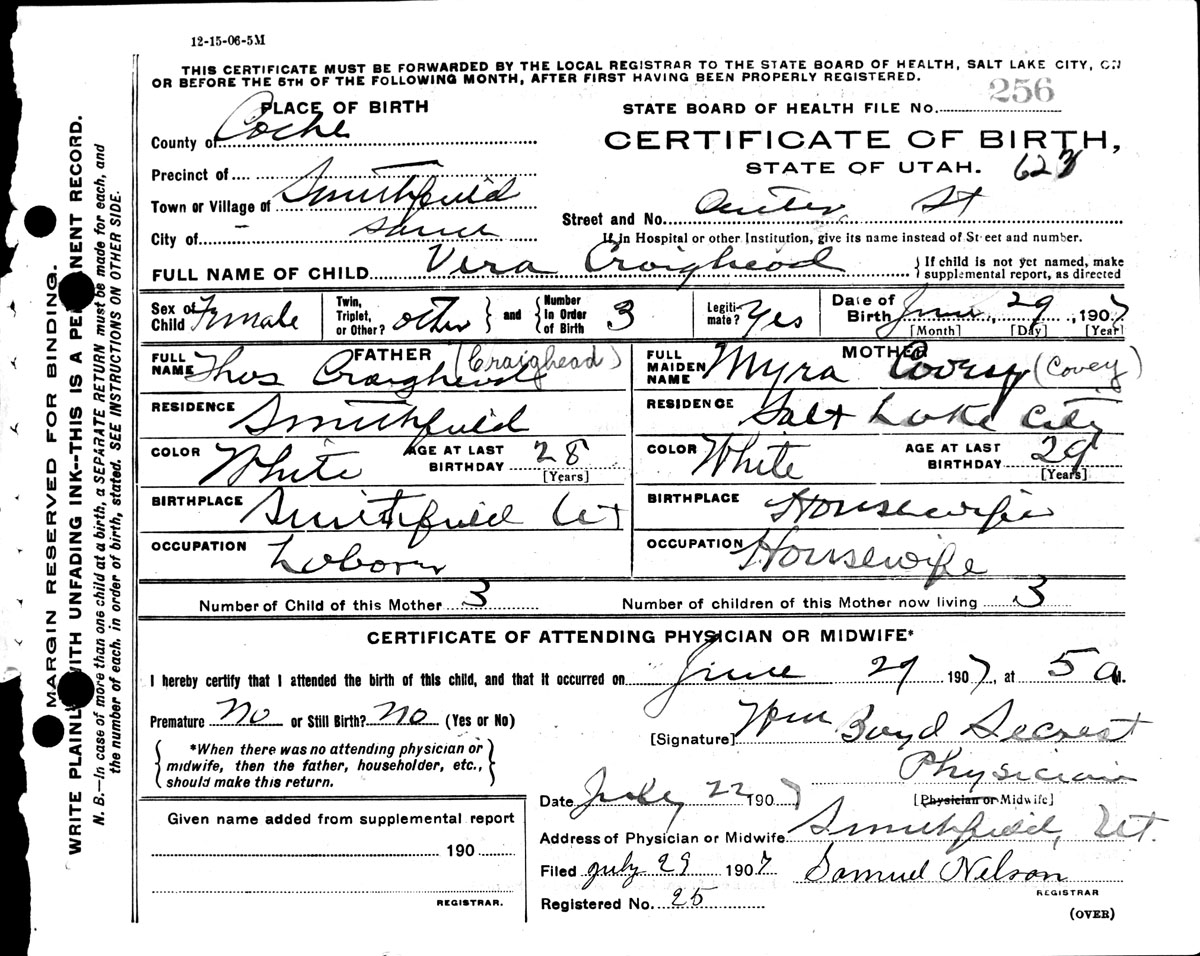 12-15-06-5M
THIS CERTIFICATE MUST BE FORWARDED BY THE LOCAL REGISTRAR TO THE STATE BOARD OF HEALTH, SALT LAKE CITY, ON
OR BEFORE THE 5TH OF THE FOLLOWING MONTH, AFTER FIRST HAVING BEEN PROPERLY REGISTERED.
PLACE OF BIRTH
STATE BOARD OF HEALTH FILE No. 256
County of Cache
CERTIFICATE OF BIRTH,
STATE OF UTAH. 623
Precinct of
Town or Village of Smithfield
Street and No. St
City of - same
If in Hospital or other Institution, give its name instead of Street and number.
FULL NAME OF CHILD Vera Craighead
{ If child is not yet named, make
supplemental report, as directed
Sex of Child Female
Twin, Triplet, or Other? other } and { Number In Order of Birth 3
Legitimate? Yes
Date of Birth June, 29, 1907
[Month] [Day] [Year]
FATHER
FULL NAME Thos Craighead (Craighead)
MOTHER
FULL MAIDEN NAME Myra Covey (Covey)
RESIDENCE Smithfield
RESIDENCE Salt Lake City
COLOR White AGE AT LAST BIRTHDAY 28 [Years]
COLOR White AGE AT LAST BIRTHDAY 29 [Years]
BIRTHPLACE Smithfield Ut
BIRTHPLACE Housewife
OCCUPATION Laborer
OCCUPATION Housewife
Number of Child of this Mother 3
Number of children of this Mother now living 3
CERTIFICATE OF ATTENDING PHYSICIAN OR MIDWIFE*
I hereby certify that I attended the birth of this child, and that it occurred on June 29 1907, at 5 a.m.
Premature No or Still Birth? No (Yes or No)
[Signature] Wm Boyd Secrest
Physician
[Physician or Midwife]
{ *When there was no attending physician or
midwife, then the father, householder, etc.,
should make this return. }
Date July 22 1907
Address of Physician or Midwife Smithfield, Ut.
Given name added from supplemental report
190
REGISTRAR.
Filed July 29 1907 Samuel Nelson
REGISTRAR
Registered No. 25
(OVER)
MARGIN RESERVED FOR BINDING.
WRITE PLAINLY WITH UNFADING INK--THIS IS A PERMANENT RECORD.
N. B.—In case of more than one child at a birth, a SEPARATE RETURN must be made for each, and
the number of each, in order of birth, stated. SEE INSTRUCTIONS ON OTHER SIDE.